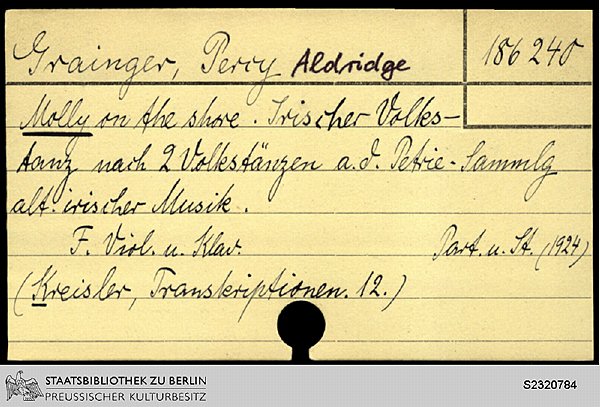 Grainger, Percy Aldridge
186 240
Molly on the shore. Irischer Volks-
tanz nach 2 Volkstänzen a. d. Petrie-Sammlg
alt. irischer Musik.
F. Viol. u. Klav. Part. u. St. (1924)
(Kreisler, Transkriptionen. 12.)
STAATSBIBLIOTHEK ZU BERLIN
PREUSSISCHER KULTURBESITZ
S2320784